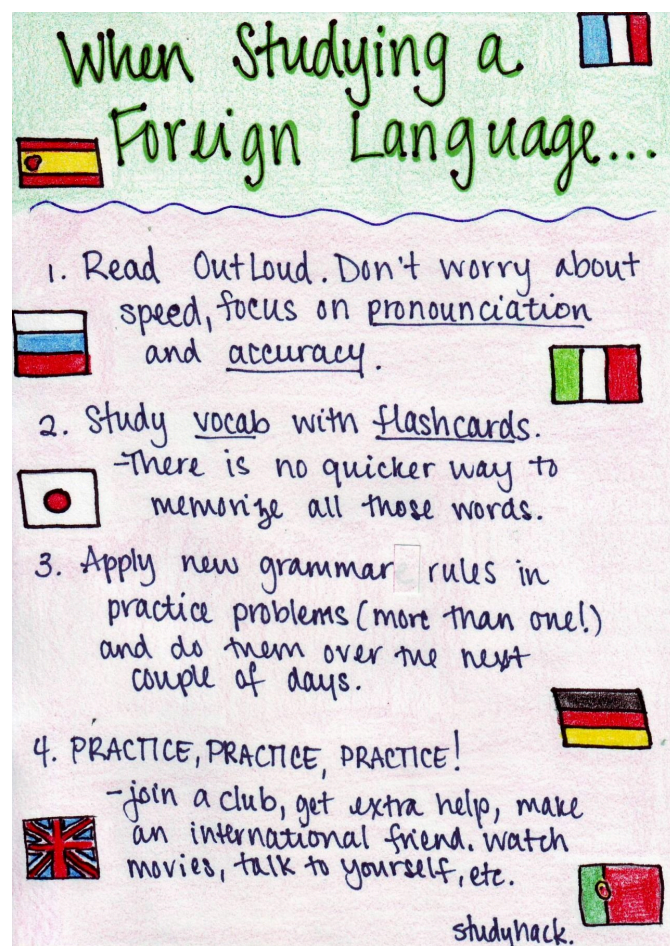 When Studying a
Foreign Language...
1. Read OutLoud. Don't worry about
speed, focus on pronounciation
and accuracy.
2. Study vocab with flashcards.
-There is no quicker way to
memorize all those words.
3. Apply new grammar rules in
practice problems (more than one!)
and do them over the next
couple of days.
4. PRACTICE, PRACTICE, PRACTICE!
-join a club, get extra help, make
an international friend. watch
movies, talk to yourself, etc.
studyhack.